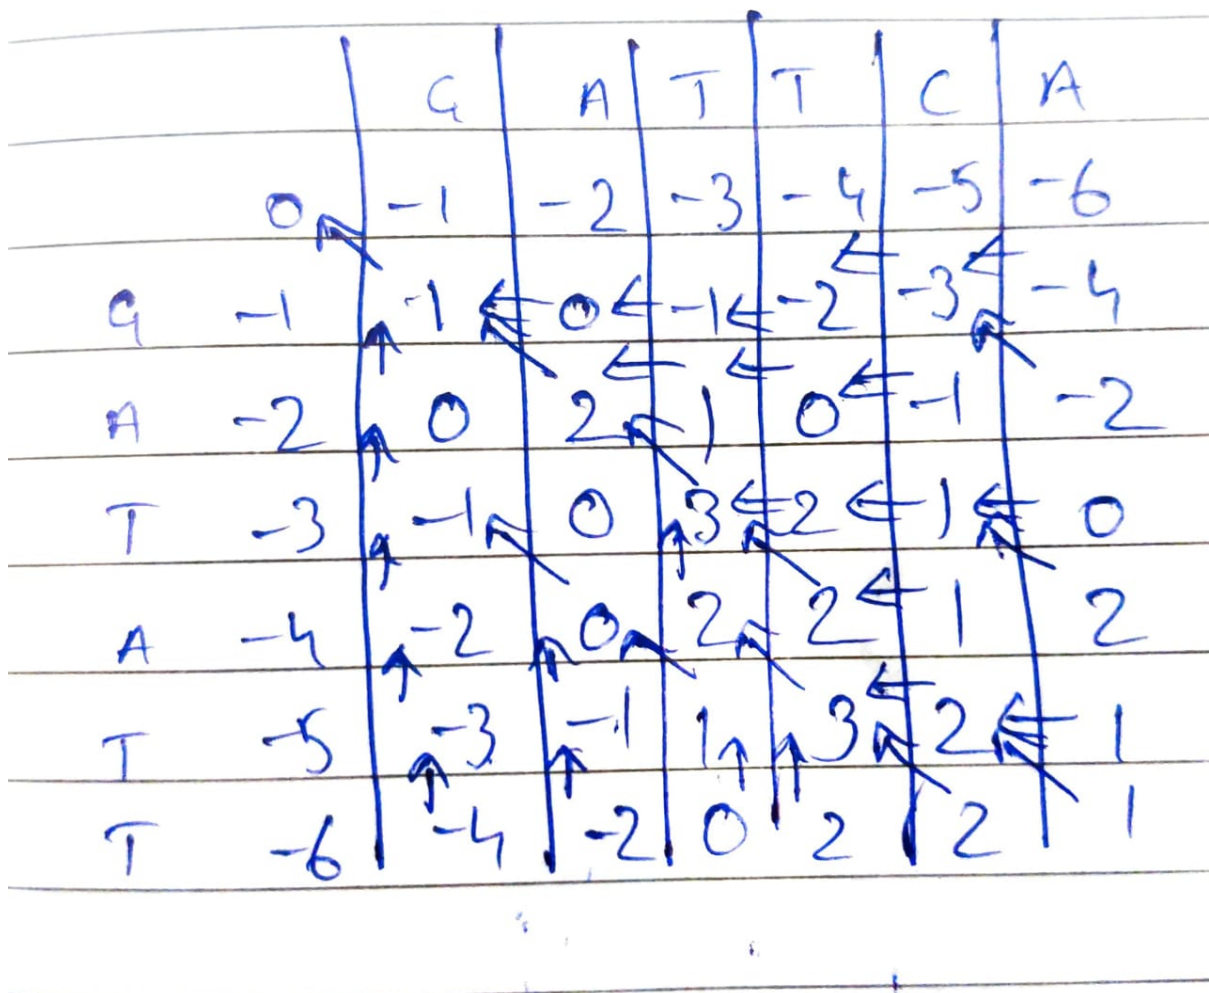 G A T T C A
0 -1 -2 -3 -4 -5 -6
G -1 -1 0 -1 -2 -3 -4
A -2 0 2 1 0 -1 -2
T -3 -1 0 3 2 1 0
A -4 -2 0 2 2 1 2
T -5 -3 -1 1 3 2 1
T -6 -4 -2 0 2 2 1